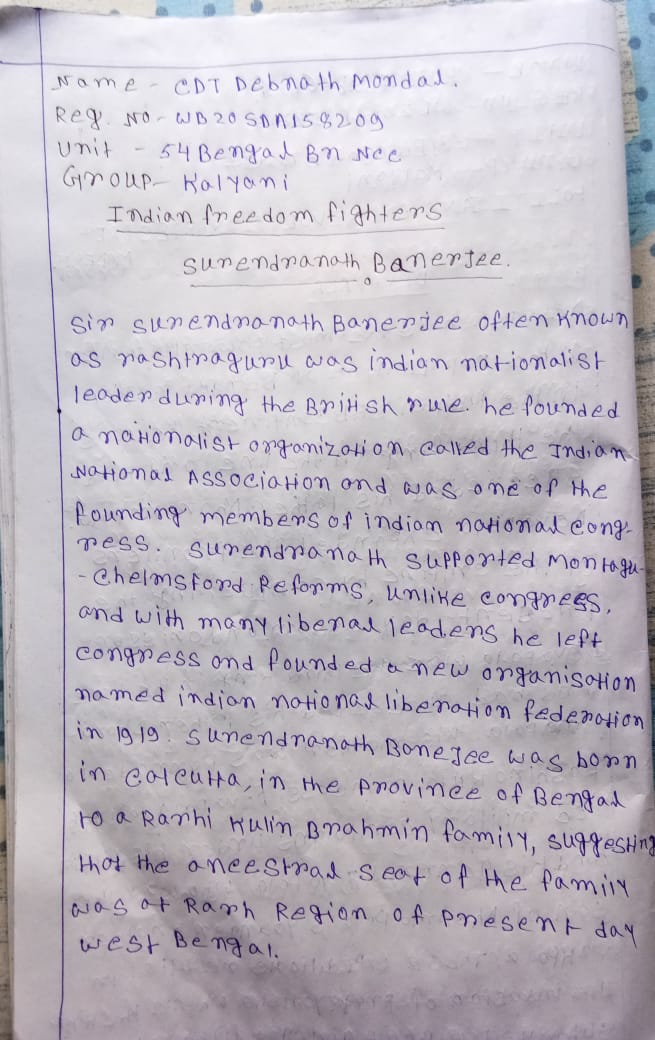 Name - CDT Debnath Mondal.
Reg. No - WB20SDA158209
Unit - 54 Bengal Bn Ncc
Group - Kalyani
Indian freedom fighters
Surendranath Banerjee.
Sir Surendranath Banerjee often known
as rashtraguru was indian nationalist
leader during the British rule. he founded
a nationalist organization called the Indian
National Association and was one of the
founding members of indian national cong-
ress. Surendranath supported Montagu
-Chelmsford Reforms, unlike congress,
and with many liberal leaders he left
congress and founded a new organisation
named indian national liberation federation
in 1919. Surendranath Banejee was born
in Calcutta, in the province of Bengal
to a Rarhi Kulin Brahmin family, suggesting
that the ancestral seat of the family
was at Rarh Region of present day
west Bengal.